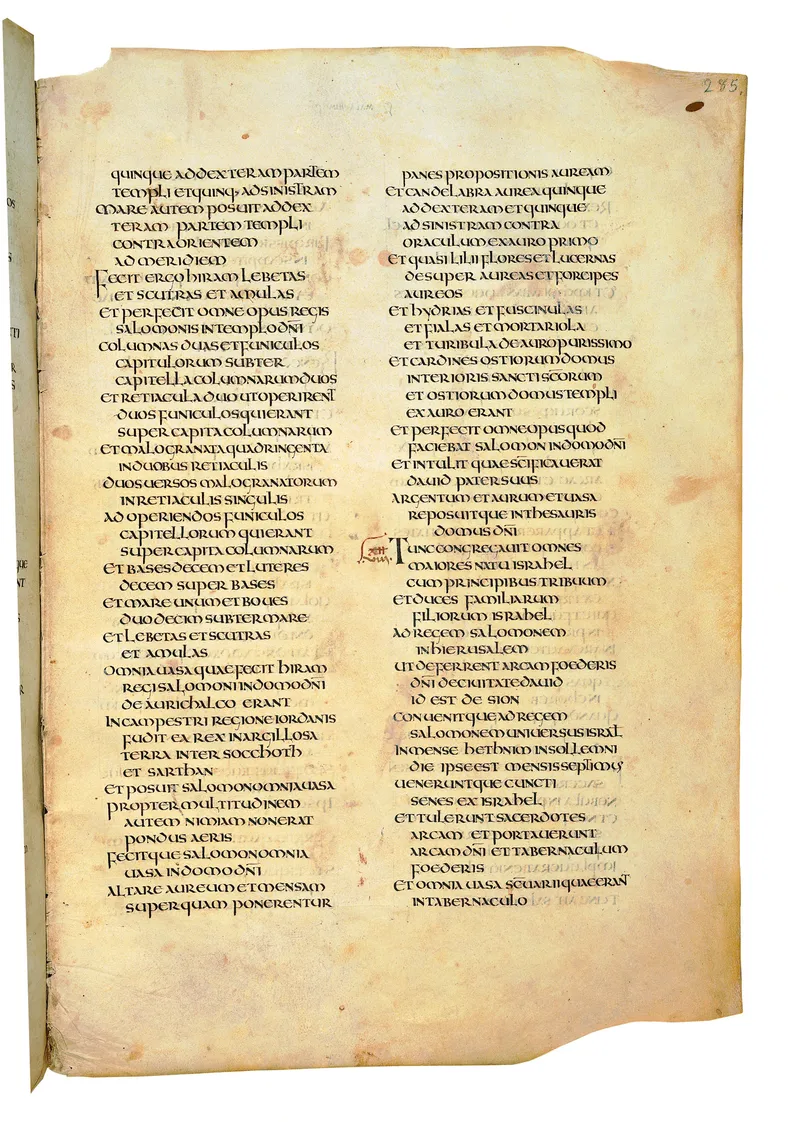 285.
quinque ad dexteram partem
templi et quinq· ad sinistram
mare autem posuit ad dex
teram partem templi
contra orientem
ad meridiem
fecit ergo hiram lebetas
et scutras et amulas
et perfecit omne opus regis
salomonis in templo dñi
columnas duas et funiculos
capitulorum super
capitella columnarum duos
et retiacula duo ut operirent
duos funiculos qui erant
super capita columnarum
et malogranata quadringenta
in duobus retiaculis
duos uersos malogranatorum
in retiaculis singulis
ad operiendos funiculos
capitellorum qui erant
super capita columnarum
et bases decem et luteres
decem super bases
et mare unum et boues
duodecim subter mare
et lebetas et scutras
et amulas
omnia uasa quae fecit hiram
regi salomoni in domo dñi
de aurichalco erant
in campestri regione iordanis
fudit ea rex in argillosa
terra inter socchoth
et sarthan
et posuit salomon omnia uasa
propter multitudinem
autem nimiam non erat
pondus aeris
fecitque salomon omnia
uasa in domo dñi
altare aureum et mensam
super quam ponerentur
panes propositionis auream
et candelabra aurea quinque
ad dexteram et quinque
ad sinistram contra
oraculum ex auro primo
et quasi lilii flores et lucernas
desuper aureas et forcipes
aureos
et hydrias et fuscinulas
et fialas et mortariola
et turibula de auro purissimo
et cardines ostiorum domus
interioris sancti scorum
et ostiorum domus templi
ex auro erant
et perfecit omne opus quod
faciebat salomon in domo dñi
et intulit quae scificauerat
dauid pater suus
argentum et aurum et uasa
reposuitque in thesauris
domus dñi
tunc congregauit omnes
maiores natu israhel
cum principibus tribuum
et duces familiarum
filiorum israhel
ad regem salomonem
in hierusalem
ut deferrent arcam foederis
dñi de ciuitate dauid
id est de sion
conuenitque ad regem
salomonem uniuersus isral
in mense hethnim in sollemni
die ipse est mensis septimus
ueneruntque cuncti
senes ex israhel
et tulerunt sacerdotes
arcam et portauerunt
arcam dñi et tabernaculum
foederis
et omnia uasa scuarii quae erant
in tabernaculo